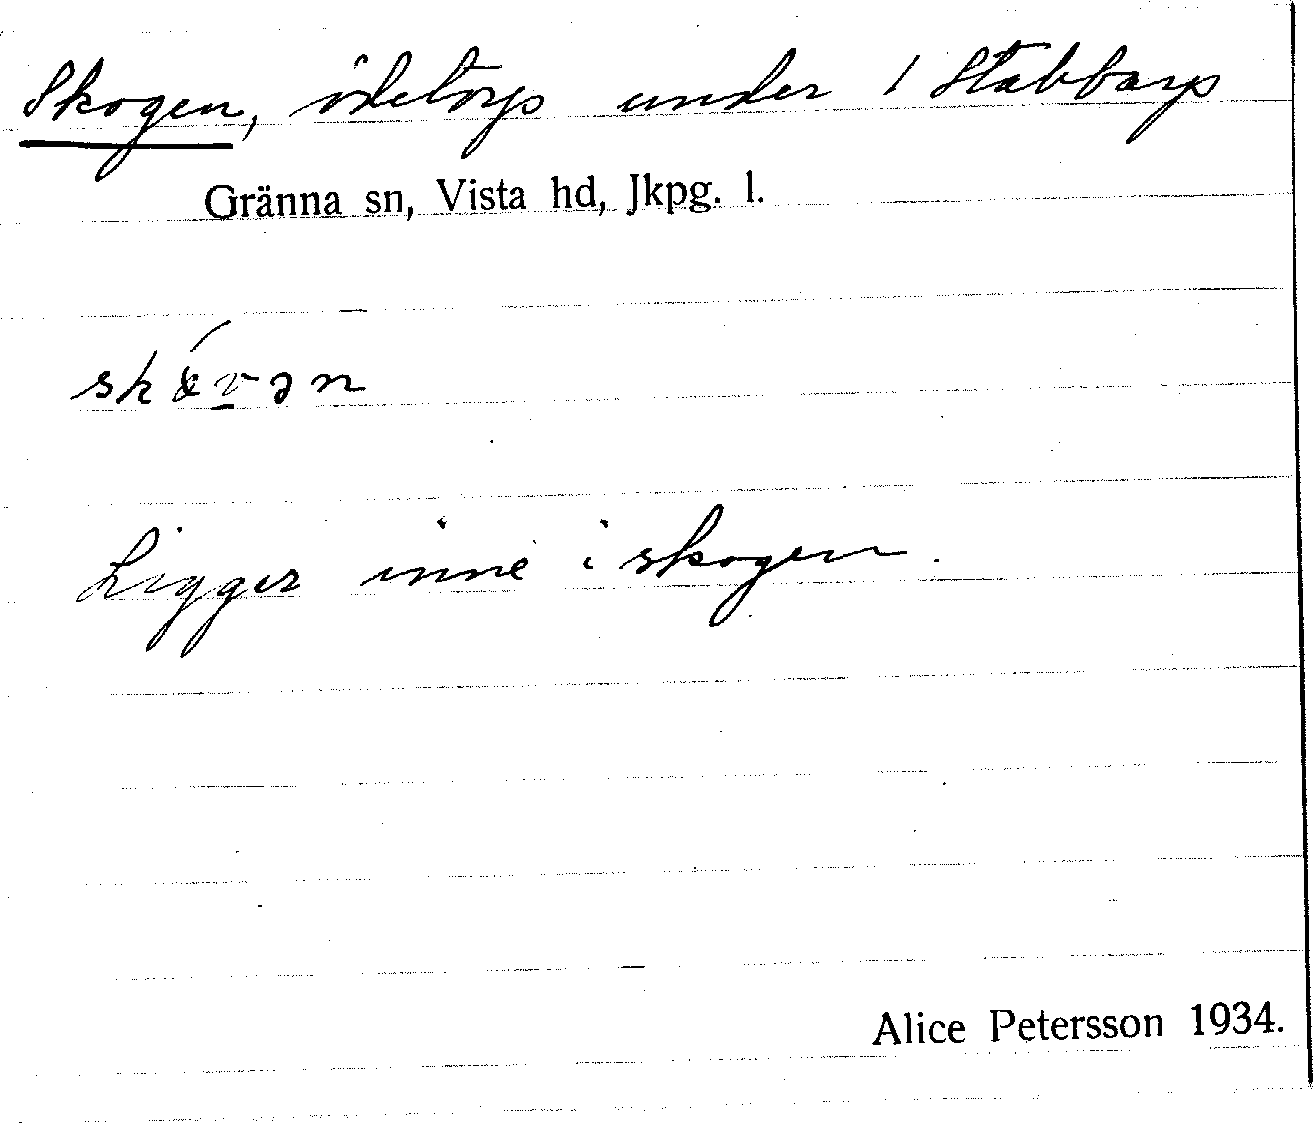 Skogen, ödetorp under 1 Stabbarp
Gränna sn, Vista hd, Jkpg. l.
Ligger inne i skogen.
Alice Petersson 1934.